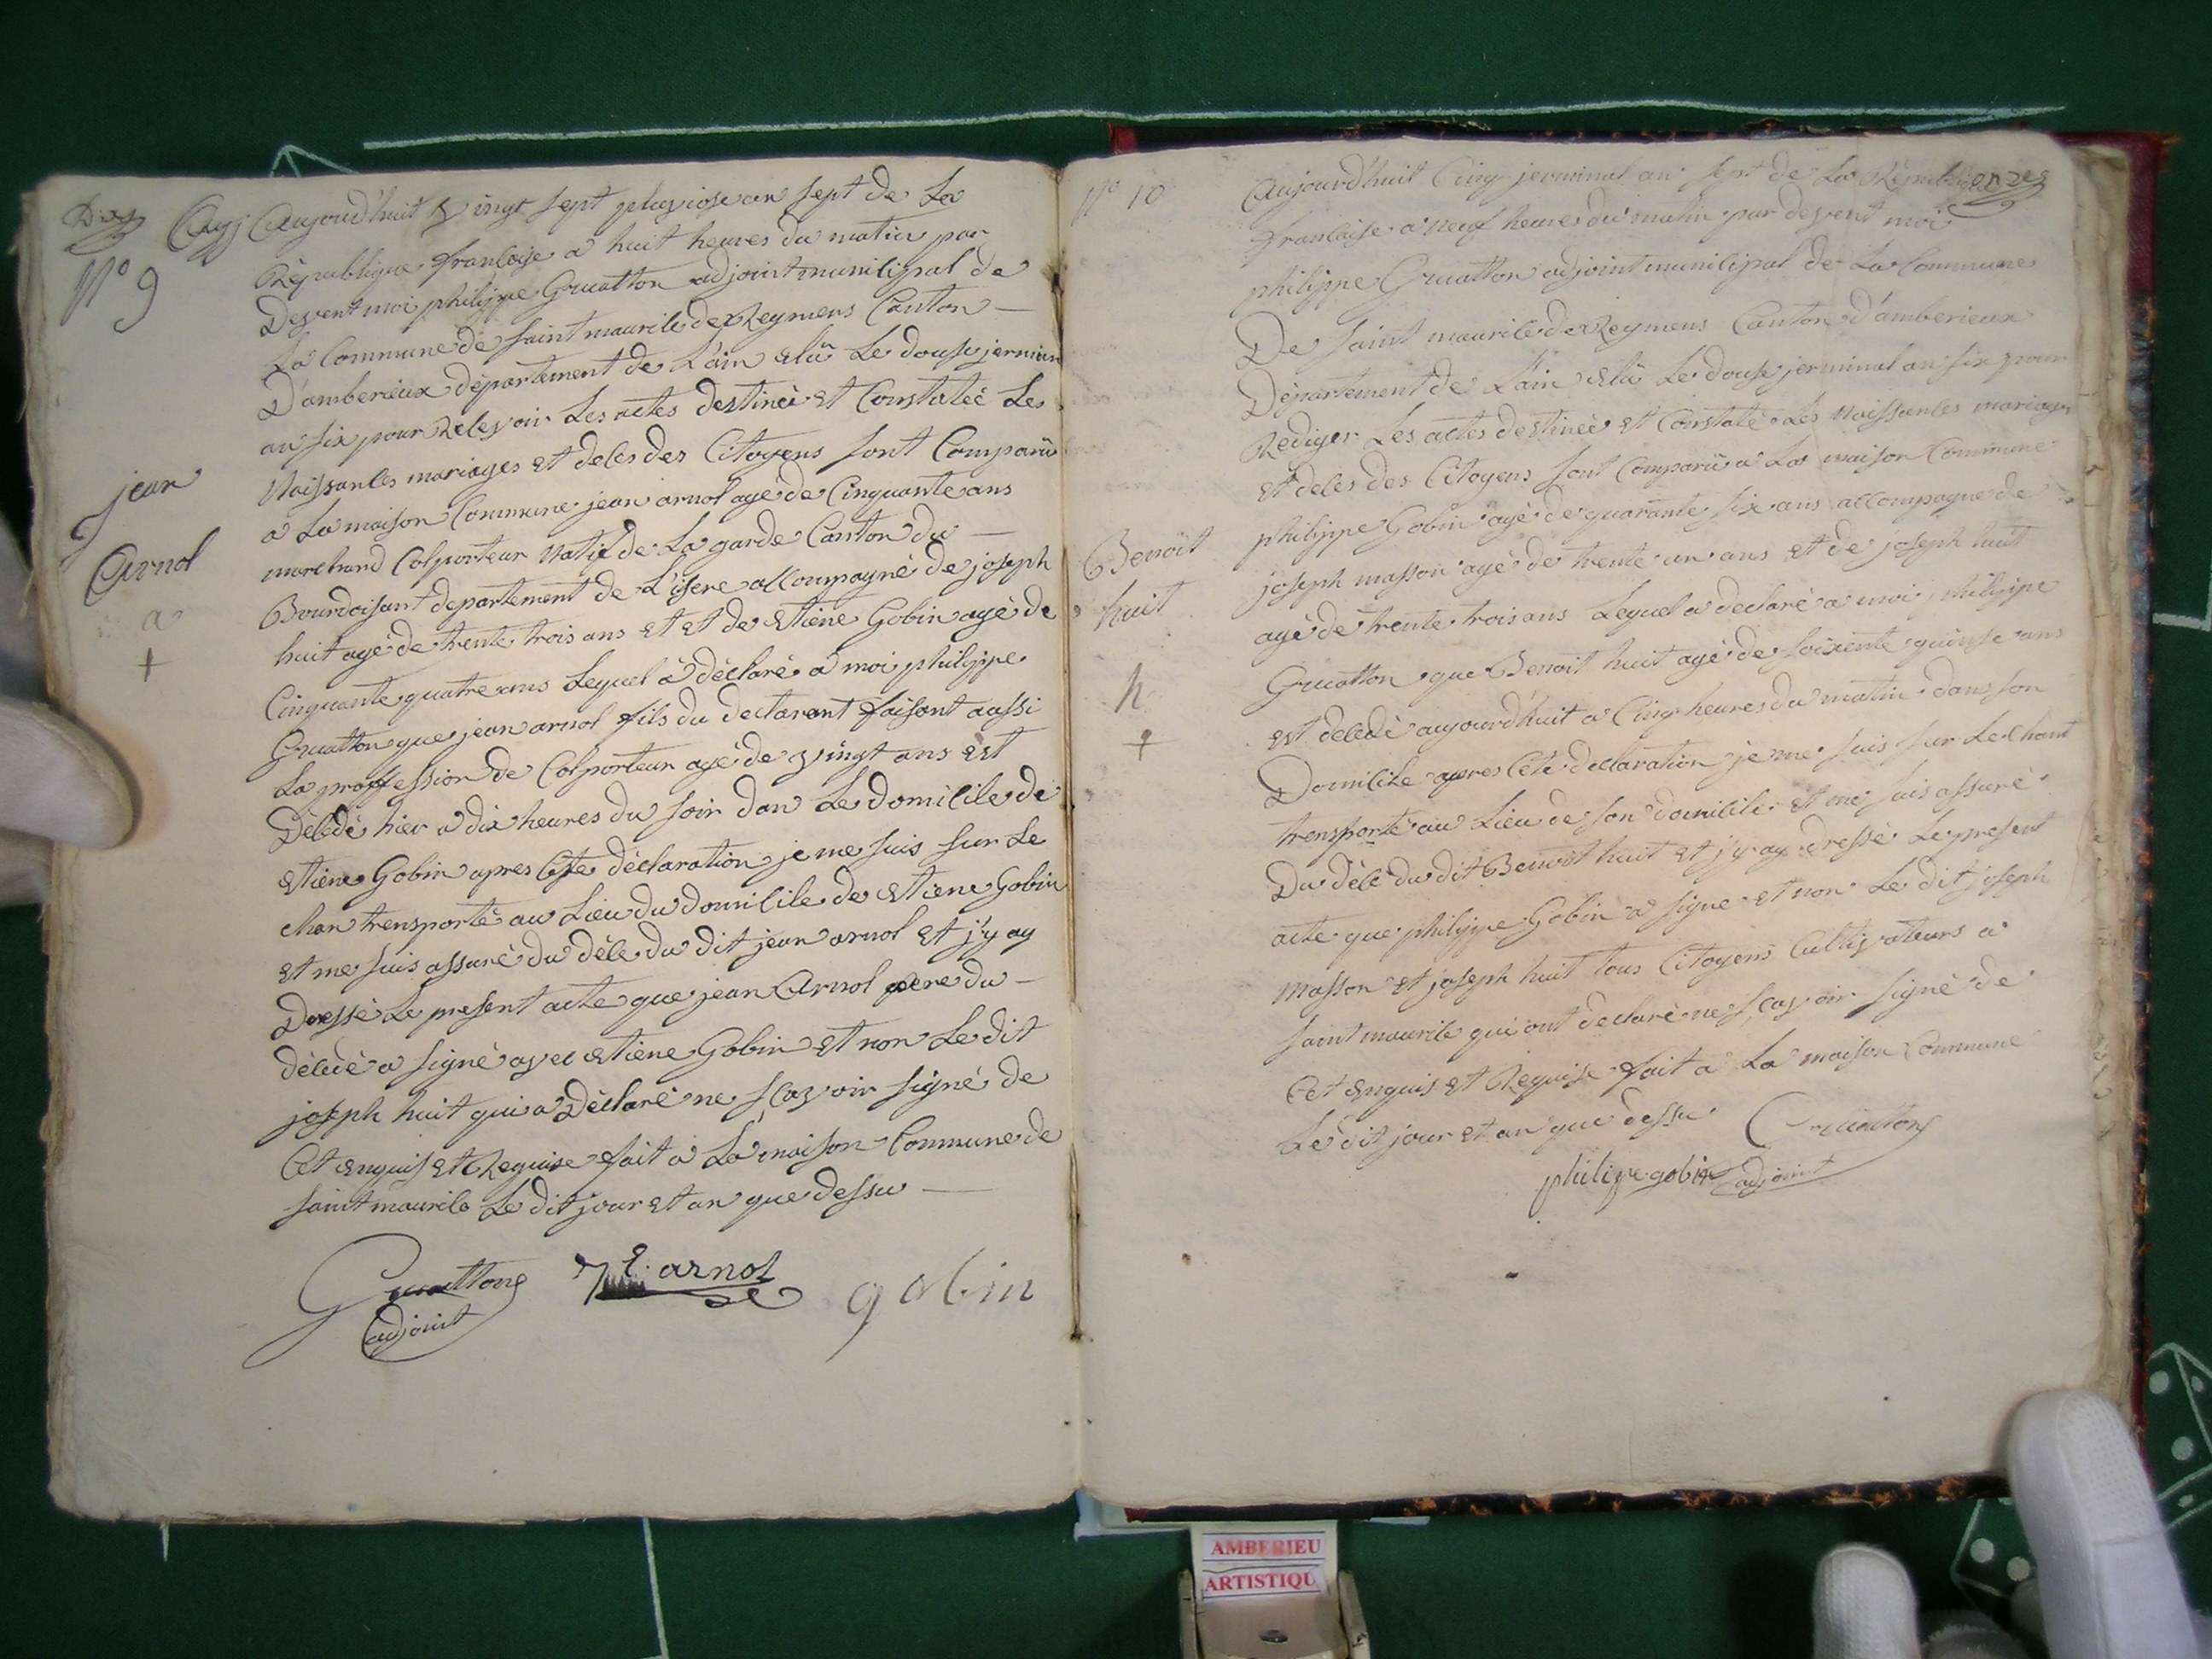 Dix
N° 9
Auj Aujourd'huit vingt sept pluviose an sept de La
République francaise a huit heures du matin par
Devent moi philippe Gruatton adjoint municipal de
La Commune de saint maurice de Reymens Canton
D'amberieux département de L'ain elû Le douse jerminal
an six pour Recevoir Les actes destineé et Constateé Les
Naissances mariages et deces des Citoyens sont Comparû
a La maison Commune jean arnol agé de Cinquante ans
marchand Colporteur Natif de La garde Canton du
Bourdoisant departement de L'isere accompagné de joseph
huit agé de trente trois ans et et de Etiene Gobin agé de
Cinquante quatre ans Lequel à déclaré a moi philippe
Gruatton que jean arnol fils du declarant faisant aussi
La proffession de Colporteur agé de vingt ans est
Décedé hier a dix heures du soir dan Le domicile de
Etiene Gobin apres Cete déclaration je me suis sur Le
chan trensporté au Lieu du domicile de Etiene Gobin
et me suis assuré du déce du dit jean arnol et j'y ay
Dressé Le present acte que jean Arnol pere du
décedé a signé avec Etiene Gobin et non Le dit
joseph huit qui a Déclaré ne sçavoir signé de
Cet enquis et Requise fait a La maison Commune de
saint maurice Le dit jour et an que dessu
jean
Arnol
a
+
Gruatton
adjoint
arnol
gobin
onze
N° 10
Aujourd'huit Cinq jerminal an sept de La République
francaise a neuf heures du matin par devent moi
philippe Gruatton adjoint municipal de La Commune
De saint maurice de Reymens Canton d'amberieux
Département de L'ain elû Le douse jerminal an six pour
Rediger Les actes destineé et Constaté Les Naissances mariages
et deces des Citoyens sont Comparû a La maison Commune
philippe Gobin agé de quarante six ans accompagne de
joseph masson agé de trente un ans et de joseph huit
agé de trente trois ans Lequel a declaré a moi philippe
Gruatton que Benoit huit agé de soixente quinse ans
est decedé aujourd'huit a Cinq heures du matin dans son
Domicile apres Cete declaration je me suis sur Le chant
trensporté au Lieu de son domicile et me suis assuré
Du déce du dit Benoit huit et j'y ay dressé Le present
acte que philippe Gobin a signe et non Le dit joseph
masson et joseph huit tous Citoyens Cultivateurs a
saint maurice qui ont declaré ne sçavoir signé de
Cet enquis et Requise fait a La maison Commune
Le dit jour et an que dessu
Benoit
huit
h
+
Gruatton
adjoint
philipe gobin
AMBERIEU
ARTISTIQU